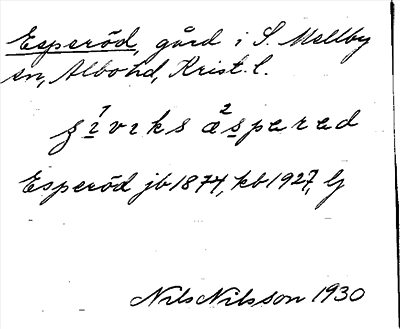 Esperöd, gård i S. Mellby
sn, Albo hd, Krist. l.
ʒ i¹viks æ²sparad
Esperöd jb 1874, kb 1927, Lj
Nils Nilsson 1930